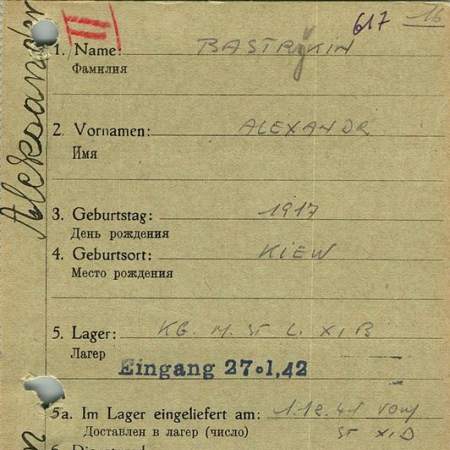 617 16
Aleksander
1. Name: BASTRYKIN
Фамилия
2. Vornamen: ALEXANDR
Имя
3. Geburtstag: 1917
День рождения
4. Geburtsort: KIEW
Место рождения
5. Lager: KG. M. ST L. XI B
Лагер
Eingang 27.1.42
5a. Im Lager eingeliefert am: 1.12.41 vom
Доставлен в лагер (число) ST XI D